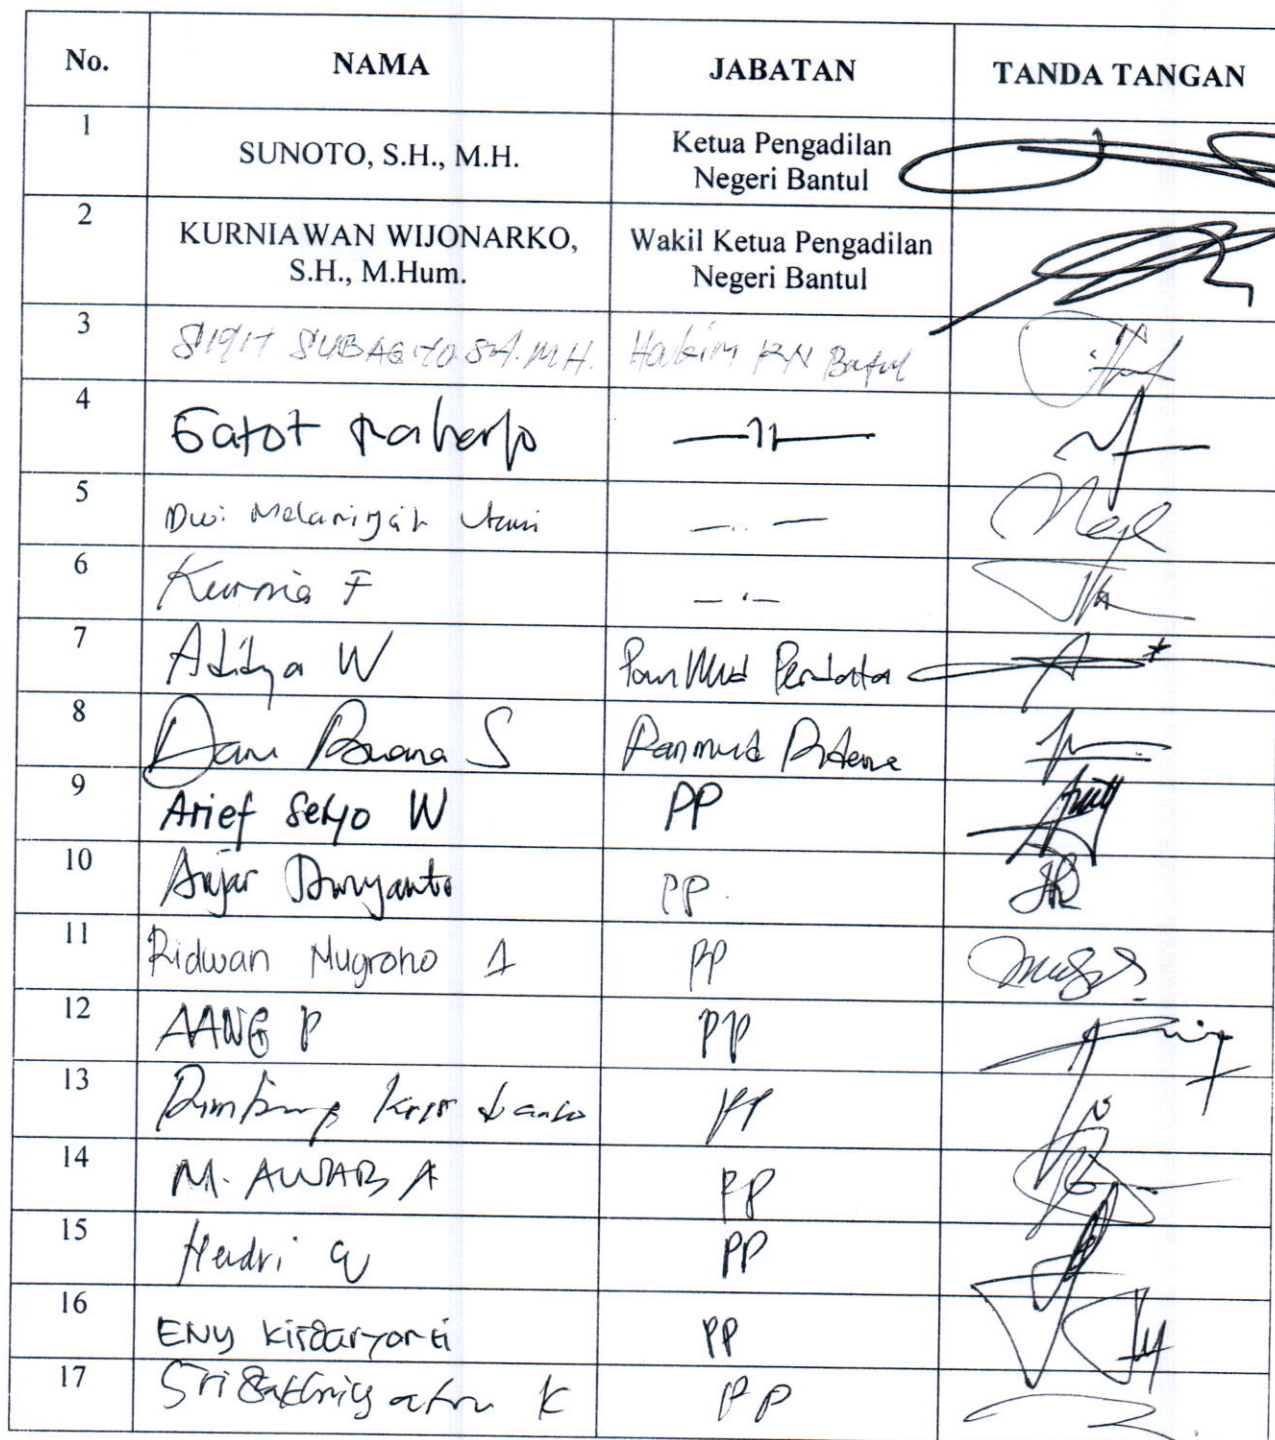 No. NAMA JABATAN TANDA TANGAN
1 SUNOTO, S.H., M.H. Ketua Pengadilan
Negeri Bantul
2 KURNIAWAN WIJONARKO, Wakil Ketua Pengadilan
S.H., M.Hum. Negeri Bantul
3 SIGIT SUBAGIYO S.H. M.H. Hakim PN Bantul
4 Gatot Raharjo —11—
5 Dwi Melaningsih Utami
6 Kurnia F
7 Aditya W PanMud Perdata
8 Danu Buana S Panmud Pidana
9 Arief Setyo W PP
10 Anjar PP.
11 Ridwan Nugroho A PP
12 AANG P PP
13 PP
14 M. AWAB A PP
15 Hendri PP
16 ENY PP
17 Sri K PP